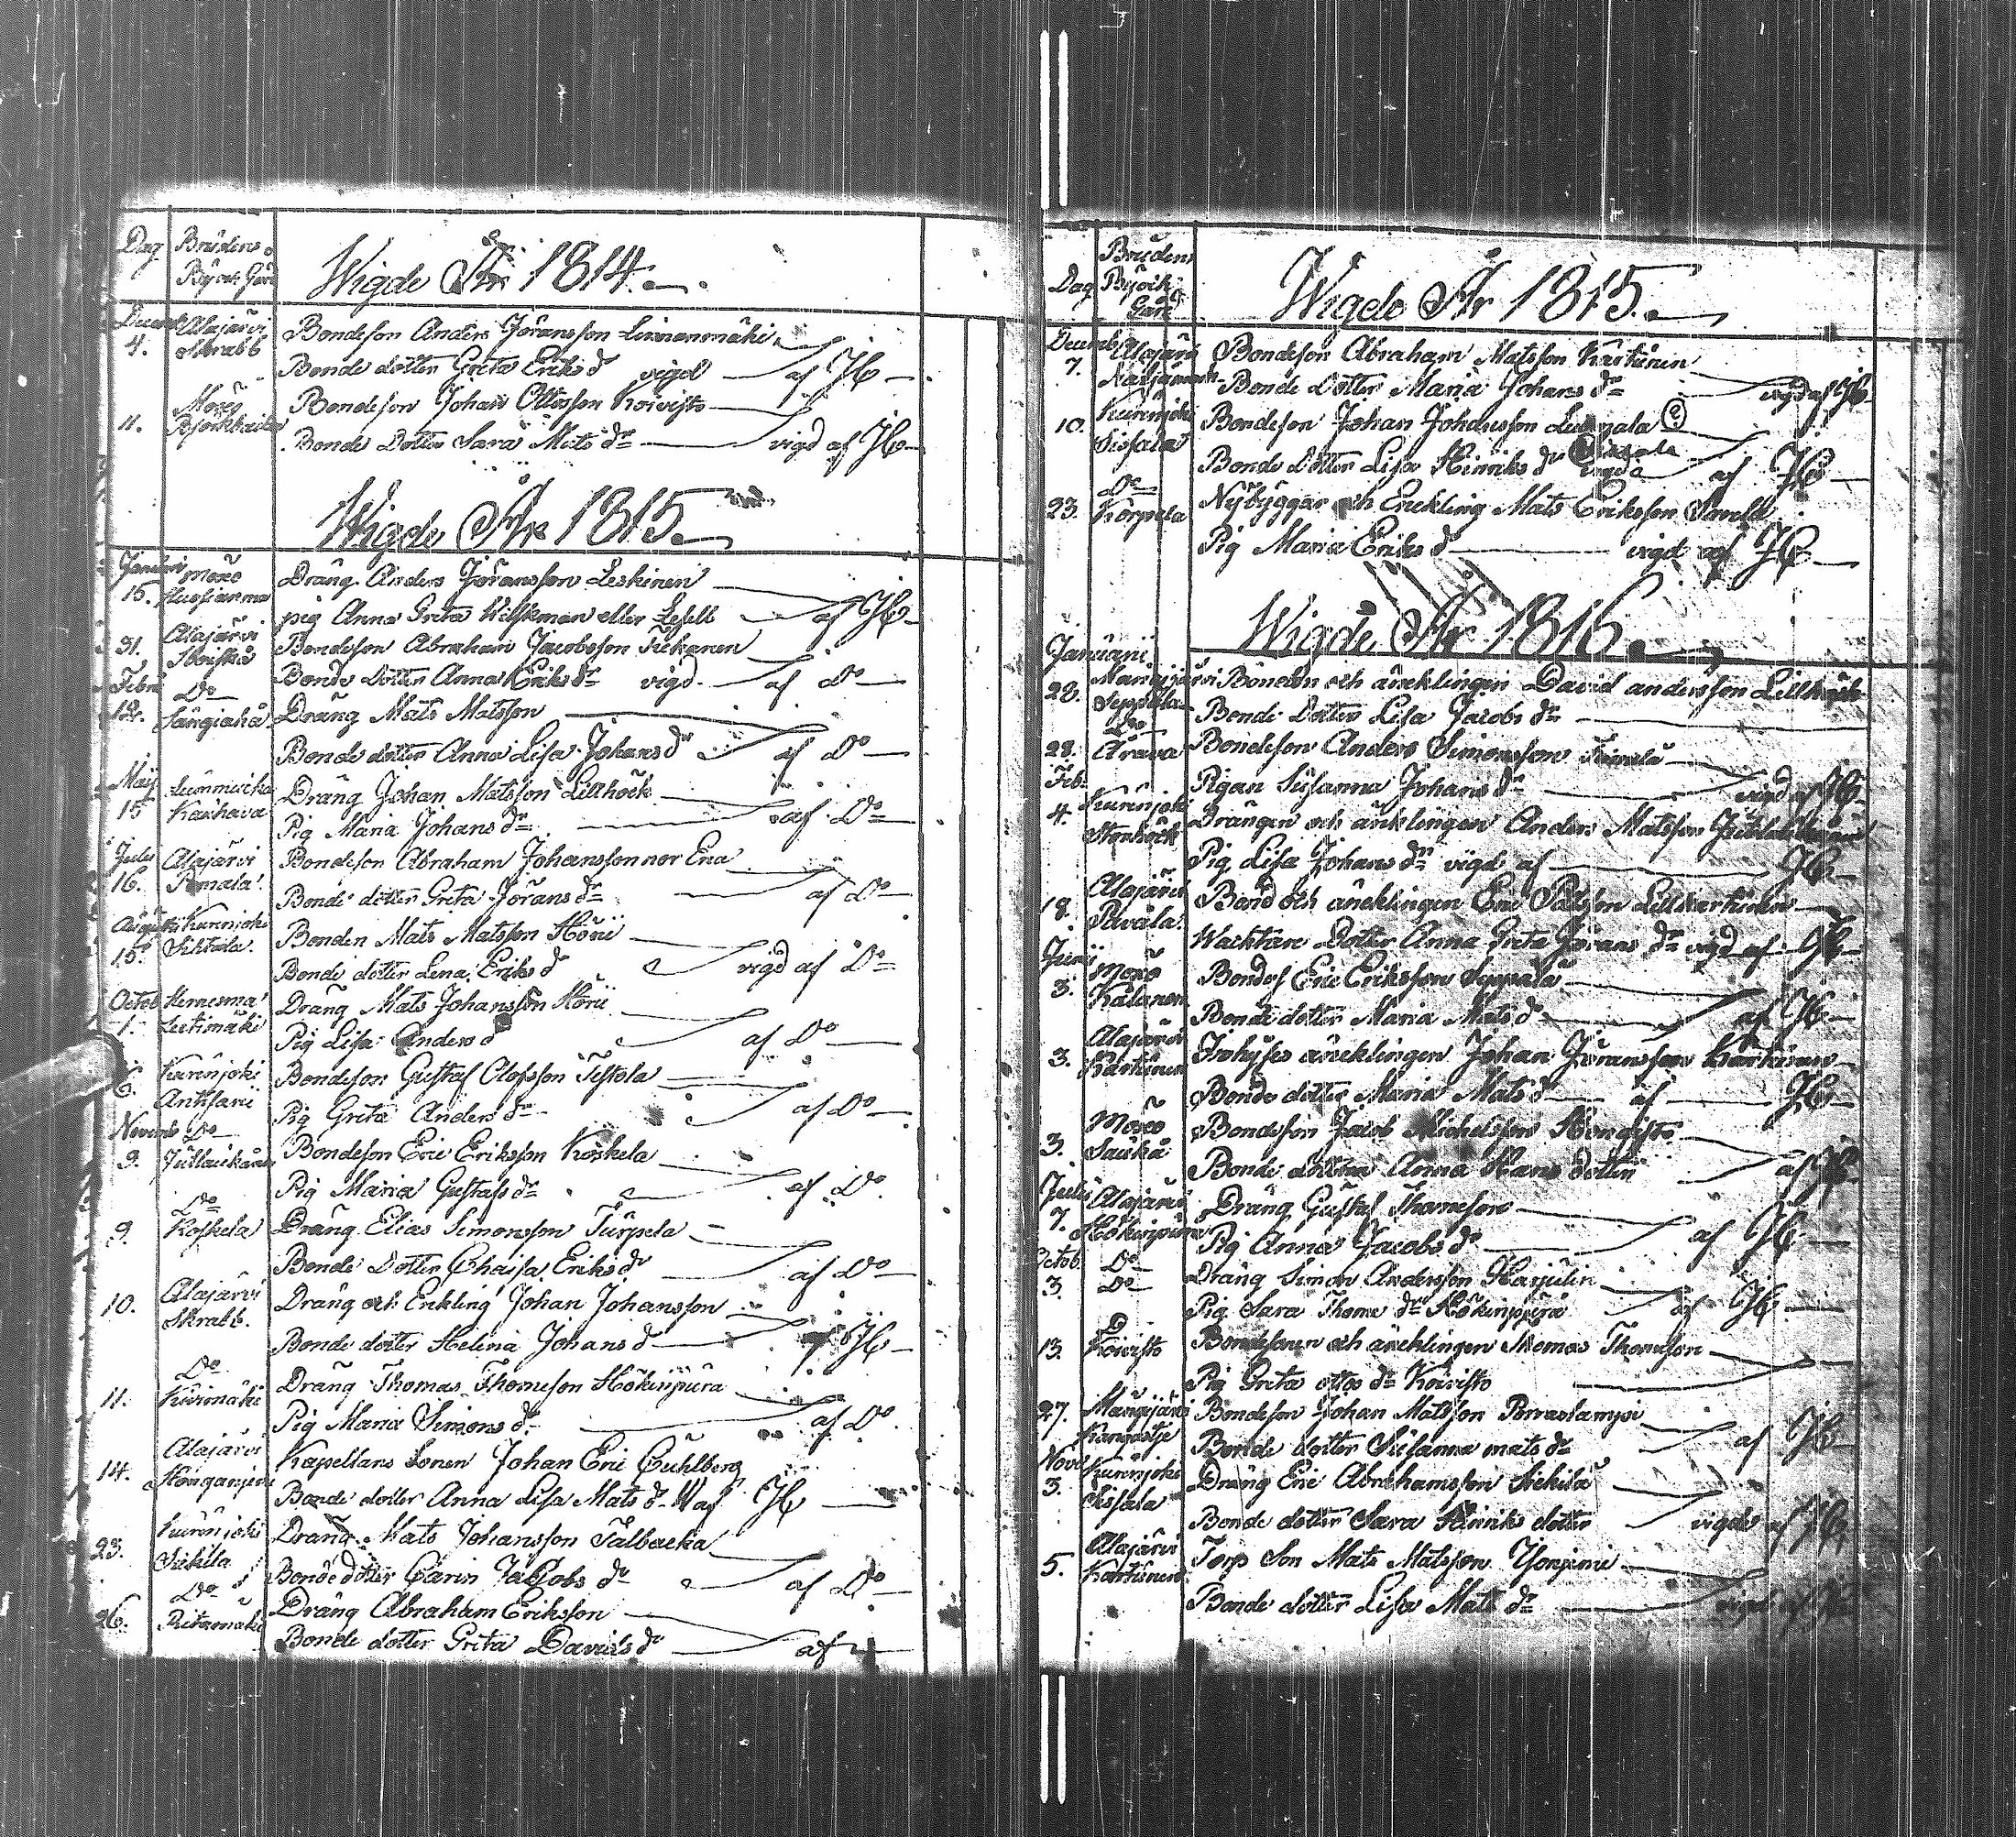 Dag
Brudens
By och Gård
Wigde År 1814.
Decemb
4.
Alajärvi
Skrabb
Bondeson Anders Jöransson Linnanmäki
Bonde dotter Greta Eriks dr vigd af JC
11.
Möxö
Bondeson Johan Ottosson Koivisto
Bonde Dotter Sara Mats dr vigd af JC
Wigde År 1815.
Januari
15.
Möxö
Dräng Anders Jöransson Leskinen
pig Anna Greta eller Lesell af JC
31.
Alajärvi
Bondeson Abraham Jacobsson Tiekanen
Bonde Dotter Anna Eriks dr vigd af Do
Febru
12.
Do
Sängiaho
Dräng Mats Matsson
Bonde dotter Anna Lisa Johans dr af Do
Maij
15
Kauhava
Dräng Johan Matsson Lillhöck
Pig Maria Johans dr af Do
Julii
16.
Alajärvi
Bondeson Abraham Johansson nor Ena
Bonde dotter Greta Jörans dr af Do
Augusti
15.
Kurenjoki
Bonden Mats Matsson Höni
Bonde dotter Lena Eriks dr vigd af Do
Octob
1.
Lehtimäki
Dräng Mats Johansson Höni
Pig Lisa Anders dr af Do
6.
Kurenjoki
Anttfarii
Bondeson Gustaf Olofsson Testola
Pig Greta Anders dr af Do
Novemb
9.
Do
Bondeson Eric Eriksson Koskela
Pig Maria Gustafs dr af Do
9.
Do
Koskela
Dräng Elias Simonsson Turpela
Bonde Dotter Chaisa Eriks dr af Do
10.
Alajärvi
Skrabb.
Dräng och Enkling Johan Johansson
Bonde dotter Helena Johans dr JC
11.
Do
Kuivimäki
Dräng Thomas Thomeson Hökinpura
Pig Maria Simons dr af Do
14.
Alajärvi
Kapellans Sonen Johan Eric Cuhlberg
Bonde dotter Anna Lisa Mats dr W af JC
23.
Kurenjoki
Siekila
Dräng Mats Johansson Talbacka
Bonde dotter Carin Jacobs dr af Do
26.
Do
Ritamäki
Dräng Abraham Eriksson
Bonde dotter Greta Davids dr af
Dag
Brudens
By och
Gård
Wigde År 1815.
December
7.
Alajärvi
Bondeson Abraham Matsson Kartunen
Bonde Dotter Maria Johans dr vigd af JC
10.
Kurenjoki
Sissala
Bondeson Johan Johansson
Bonde Dotter Lisa Hinriks dr af JC
23.
Do
Korpela
Nybyggar och Enckling Mats Eriksson
Pig Maria Eriks dr vigd af JC
Wigde År 1816.
Januarii
28.
Seppälä
Bonden och äncklingen David andersson Lillhöck
Bonde Dotter Lisa Jacobs dr
28.
Do
Arava
Bondeson Anders Simonsson
Pigan Susanna Johans dr vigd af JC
Feb.
4.
Kurenjoki
Stenhöck
Drängen och änklingen Anders Matsson
Pig Lisa Johans dr vigd af JC
18.
Alajärvi
Pavala
Bond och äncklingen Eric Lillkartunen
Wacktare Dotter Anna Greta Jörans dr vigd af JC
Junii
3.
Möxö
Bondes Eric Eriksson Seppälä
Bonde dotter Maria Mats dr af JC
3.
Alajärvi
Kartunen
Inhyses äncklingen Johan Jöransson Kartunen
Bonde dotter Maria Mats dr af JC
3.
Möxö
Sauka
Bondeson Jacob Michelsson Kongisto
Bonde dottren Anna Hans dotter af JC
Julii
7.
Alajärvi
Hökinpura
Dräng Gustaf Thomeson
Pig Anna Jacobs dr af JC
Octob.
3.
Do
Do
Dräng Simon Andersson Harjulin
Pig Sara Thome dr Hökinpura af JC
13.
D
Koivisto
Bondesonen och äncklingen Thomas Thomeson
Pig Greta ottos dr Koivisto
27.
Bondeson Johan Matsson Porraslampi
Bonde dotter Susanna mats dr af JC
Nov.
3.
Kurenjoki
Sissala
Dräng Eric Abrahamsson Siekila
Bonde dotter Sara Hinriks dotter vigde af JC
5.
Alajärvi
Kartunen
Torp Son Mats Matsson
Bonde dotter Lisa Mats dr vigd af JC